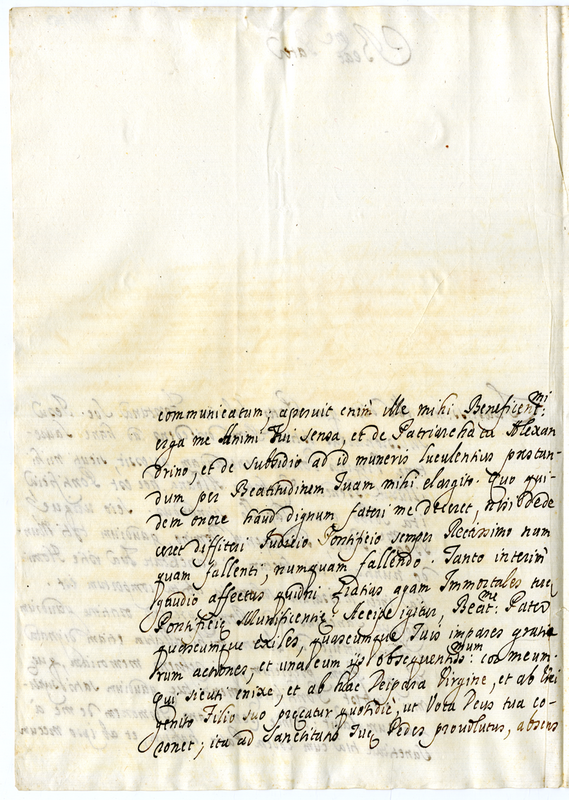 communicatum; aperuit enim Ille mihi Beneficentmi:
erga me Animi Tui sensa, et de Patriarchatu Alexan
drino, et de subsidio ad id muneris luculentius præstan-
dum per Beatitudinem Tuam mihi elargito. Quo qui-
dem onore haud dignum fateri me deceret, nisi dede
ceret diffiteri Judicio Pontificio semper Rectissimo num
quam fallenti, numquam fallendo. Tanto interim
gaudio affectus quidni Gratias agam Immortales tuę
Pontificię Munificentię? Accipe igitur, Beatme: Pater
quascumque exiles, quascumque Tuis impares gratia
rum actiones, et una cum ijs obsequentmum: cor meum.
qui sicuti enixe, et ab hac Deipara Virgine, et ab Uni
genito Filio suo precatur quotidie, ut Vota Deus tua co-
ronet; ita ad Sanctitatis Tuę Pedes provolutus, absens